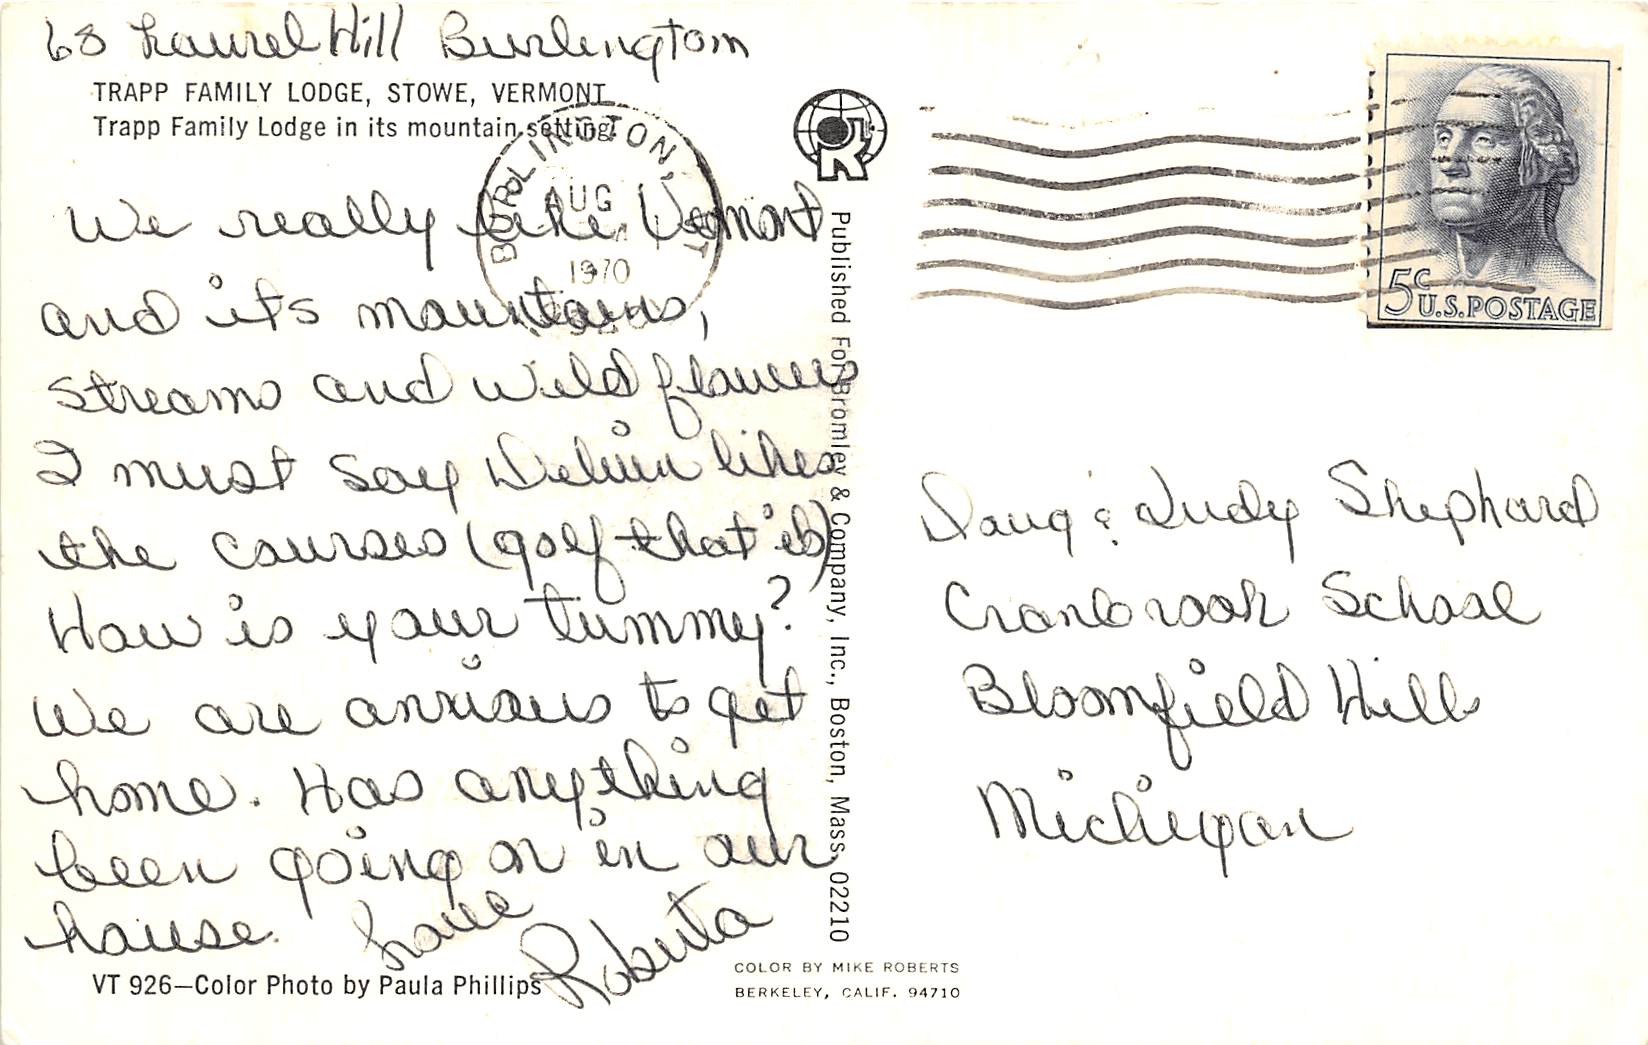 68 Laurel Hill Burlington
TRAPP FAMILY LODGE, STOWE, VERMONT
Trapp Family Lodge in its mountain setting.
We really like Vermont
and its mountains,
streams and wild flowers
I must say Delwin likes
the courses (golf that is)
How is your tummy?
We are anxious to get
home. Has anything
been going on in our
house.
Love
Roberta
VT 926—Color Photo by Paula Phillips
BURLINGTON VT
AUG
1970
Published For Bromley & Company, Inc., Boston, Mass. 02210
COLOR BY MIKE ROBERTS
BERKELEY, CALIF. 94710
5c
U.S. POSTAGE
Doug & Judy Shephard
Cranbrook School
Bloomfield Hills
Michigan